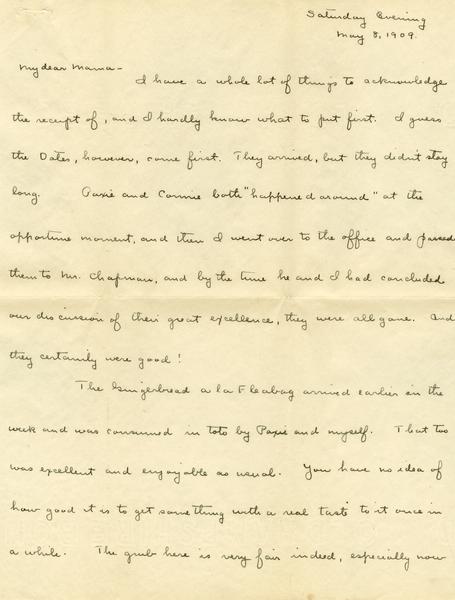 Saturday Evening
May 8, 1909.
My dear Mama -
I have a whole lot of things to acknowledge
the receipt of, and I hardly know what to put first. I guess
the Dates, however, come first. They arrived, but they didn't stay
long. Paxie and Connie both "happened around" at the
opportune moment, and then I went over to the office and passed
them to Mr. Chapman, and by the time he and I had concluded
our discussion of their great excellence, they were all gone. And
they certainly were good!
The Gingerbread a la Fleabag arrived earlier in the
week and was consumed in toto by Paxie and myself. That too
was excellent and enjoyable as usual. You have no idea of
how good it is to get something with a real taste to it once in
a while. The grub here is very fair indeed, especially now